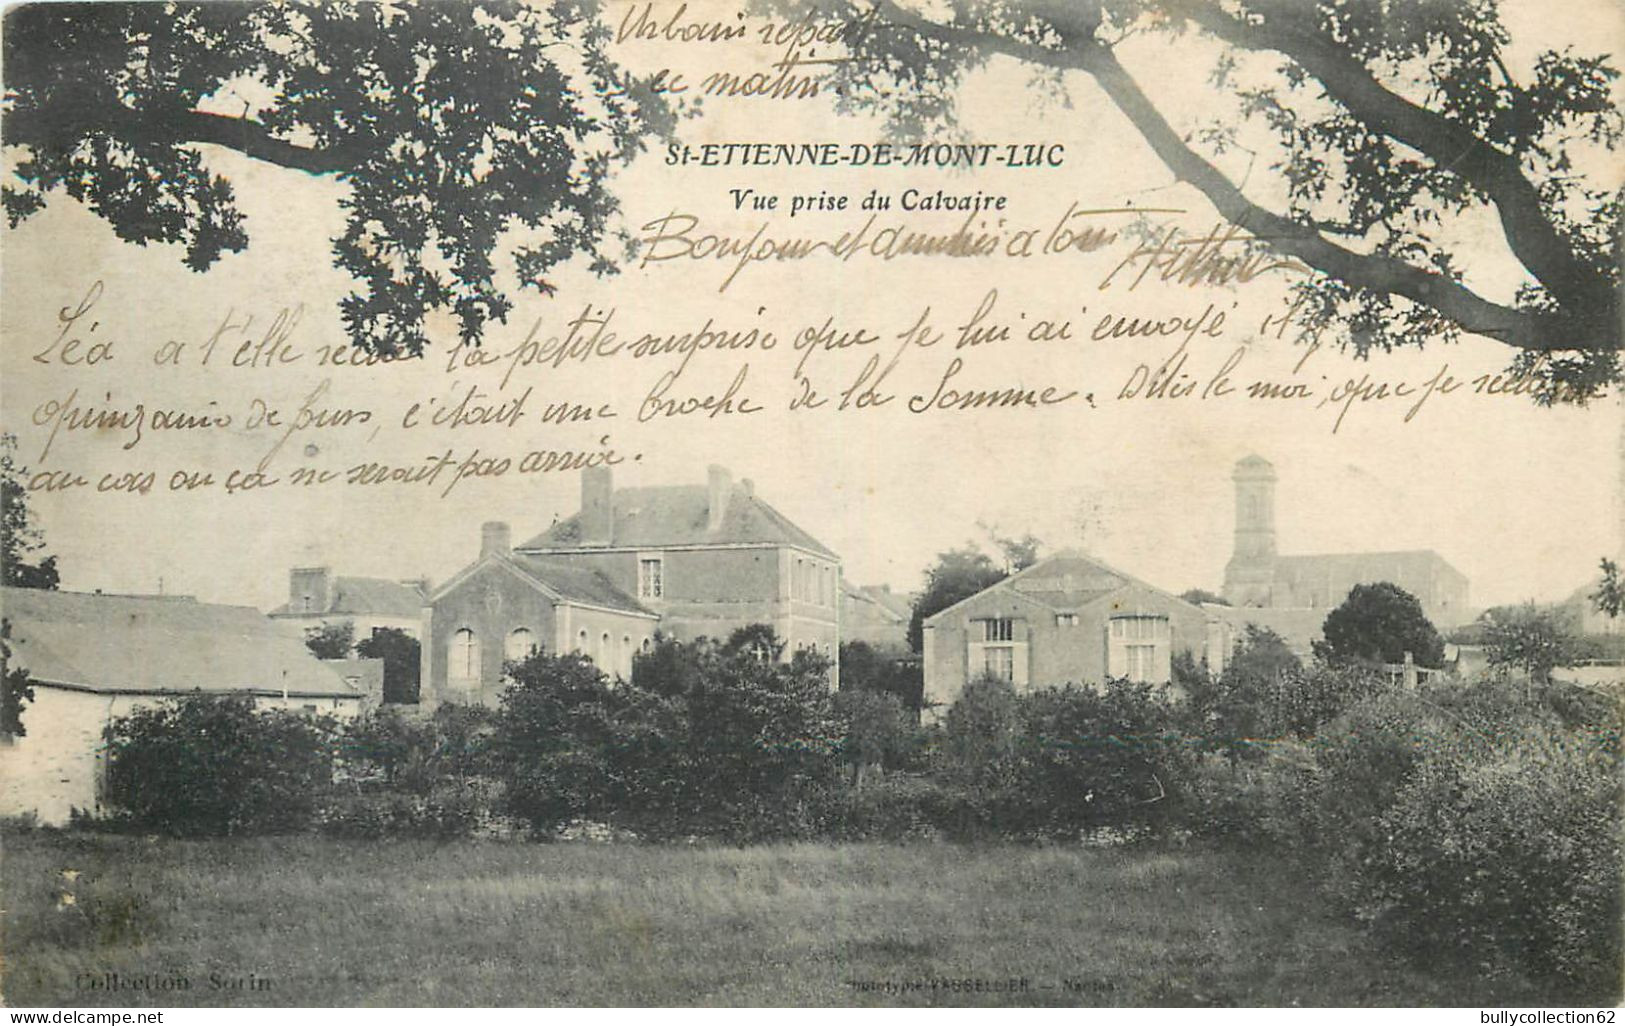 Urbain repart
ce matin.
St-ETIENNE-DE-MONT-LUC
Vue prise du Calvaire
Bonjour et amitiés a tous
Léa a t'elle recue la petite surprise que je lui ai envoyé il y a
quinzaine de jours, c'était une broche de la Somme. Dites le moi, que je
au cas ou ça ne serait pas arrivé.
Collection Sorin
Phototypie VASSELLIER — Nantes
bullycollection62